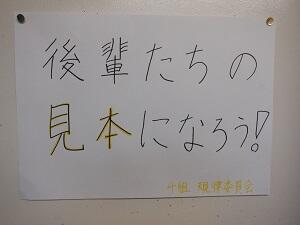 後輩たちの
見本になろう!
千組 規律委員会